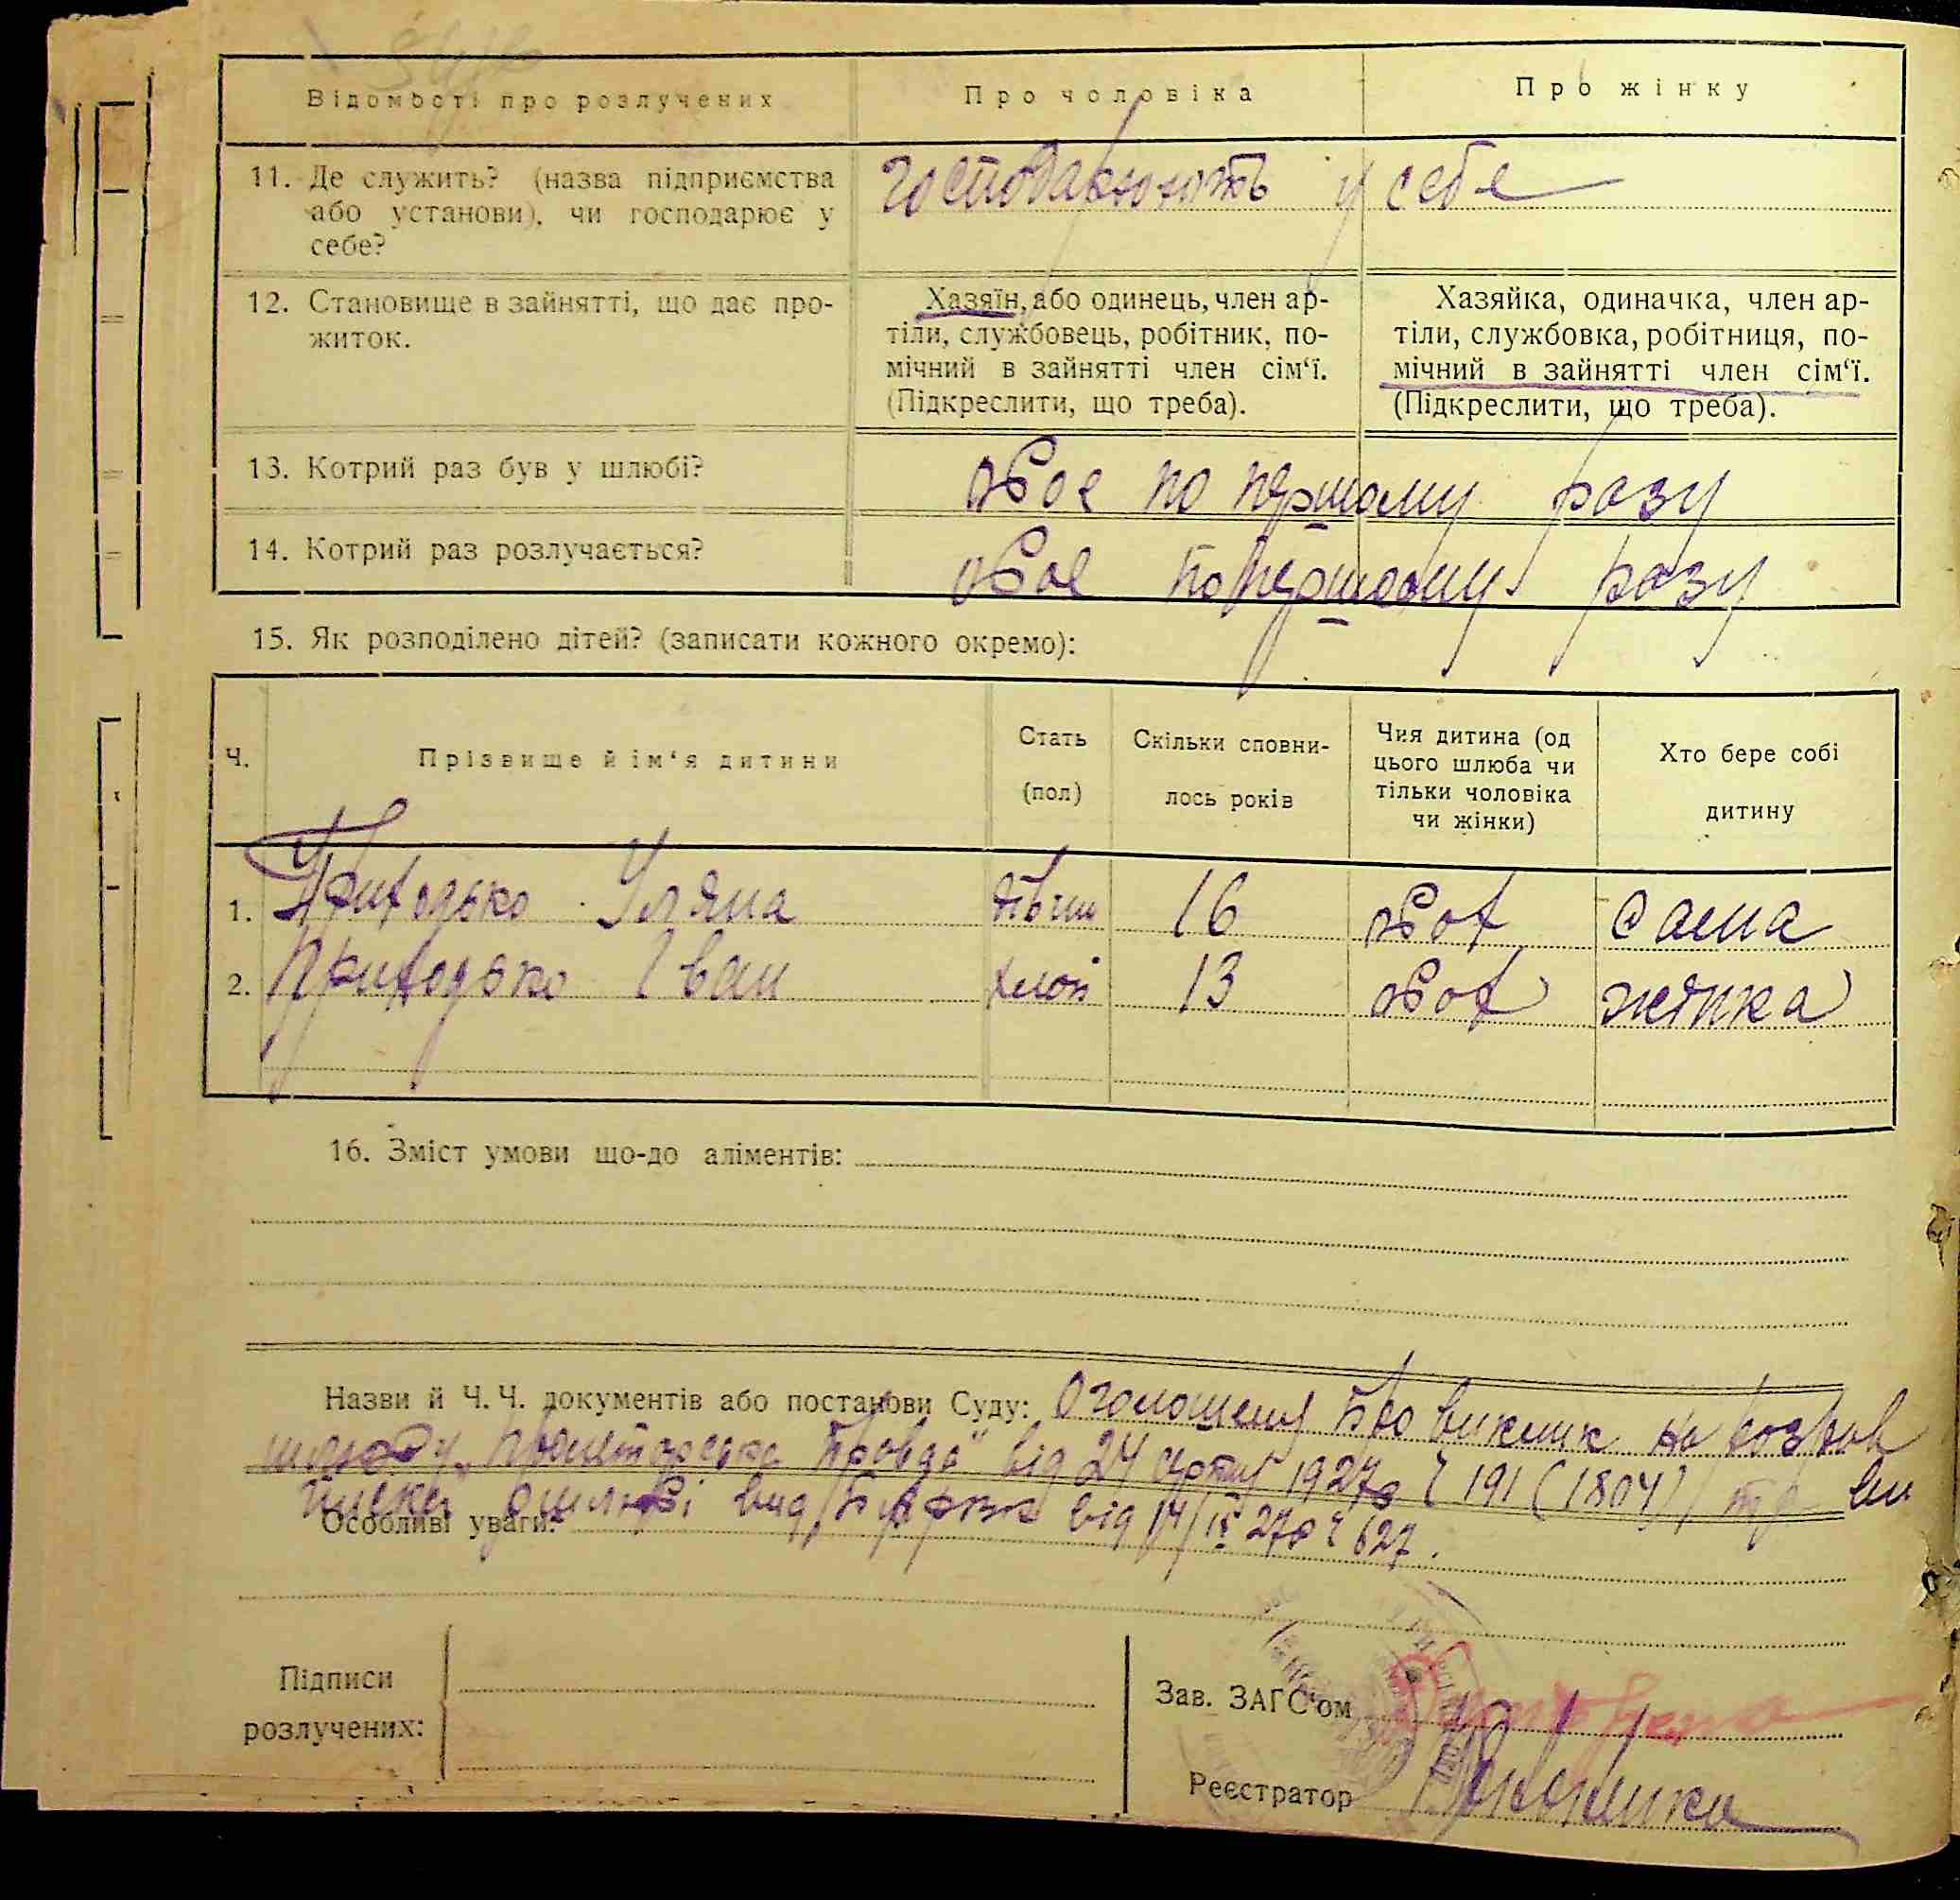 Відомості про розлучених
Про чоловіка
Про жінку
11. Де служить? (назва підприємства
або установи), чи господарює у
себе?
господарюють у себе
12. Становище в зайнятті, що дає про-
житок.
Хазяїн, або одинець, член ар-
тіли, службовець, робітник, по-
мічний в зайнятті член сім‘ї.
(Підкреслити, що треба).
Хазяйка, одиначка, член ар-
тіли, службовка, робітниця, по-
мічний в зайнятті член сім‘ї.
(Підкреслити, що треба).
13. Котрий раз був у шлюбі?
обоє по першому разу
14. Котрий раз розлучається?
обоє по першому разу
15. Як розподілено дітей? (записати кожного окремо):
Ч.
Прізвище й ім‘я дитини
Стать
(пол)
Скільки сповни-
лось років
Чия дитина (од
цього шлюба чи
тільки чоловіка
чи жінки)
Хто бере собі
дитину
1. Приходько Уляна дівчин 16 обох сама
2. Приходько Іван хлоп 13 обох жінка
16. Зміст умови що-до аліментів:
Назви й Ч. Ч. документів або постанови Суду: Оголошення про виклик на розрив
шлюбу „Пролетарська Правда“ від 24 серпня 1927 191 (1804) ви
писка шлюбі вид від 14/IX 27 627.
Особливі уваги:
Підписи
розлучених:
Зав. ЗАГС‘ом
Реєстратор